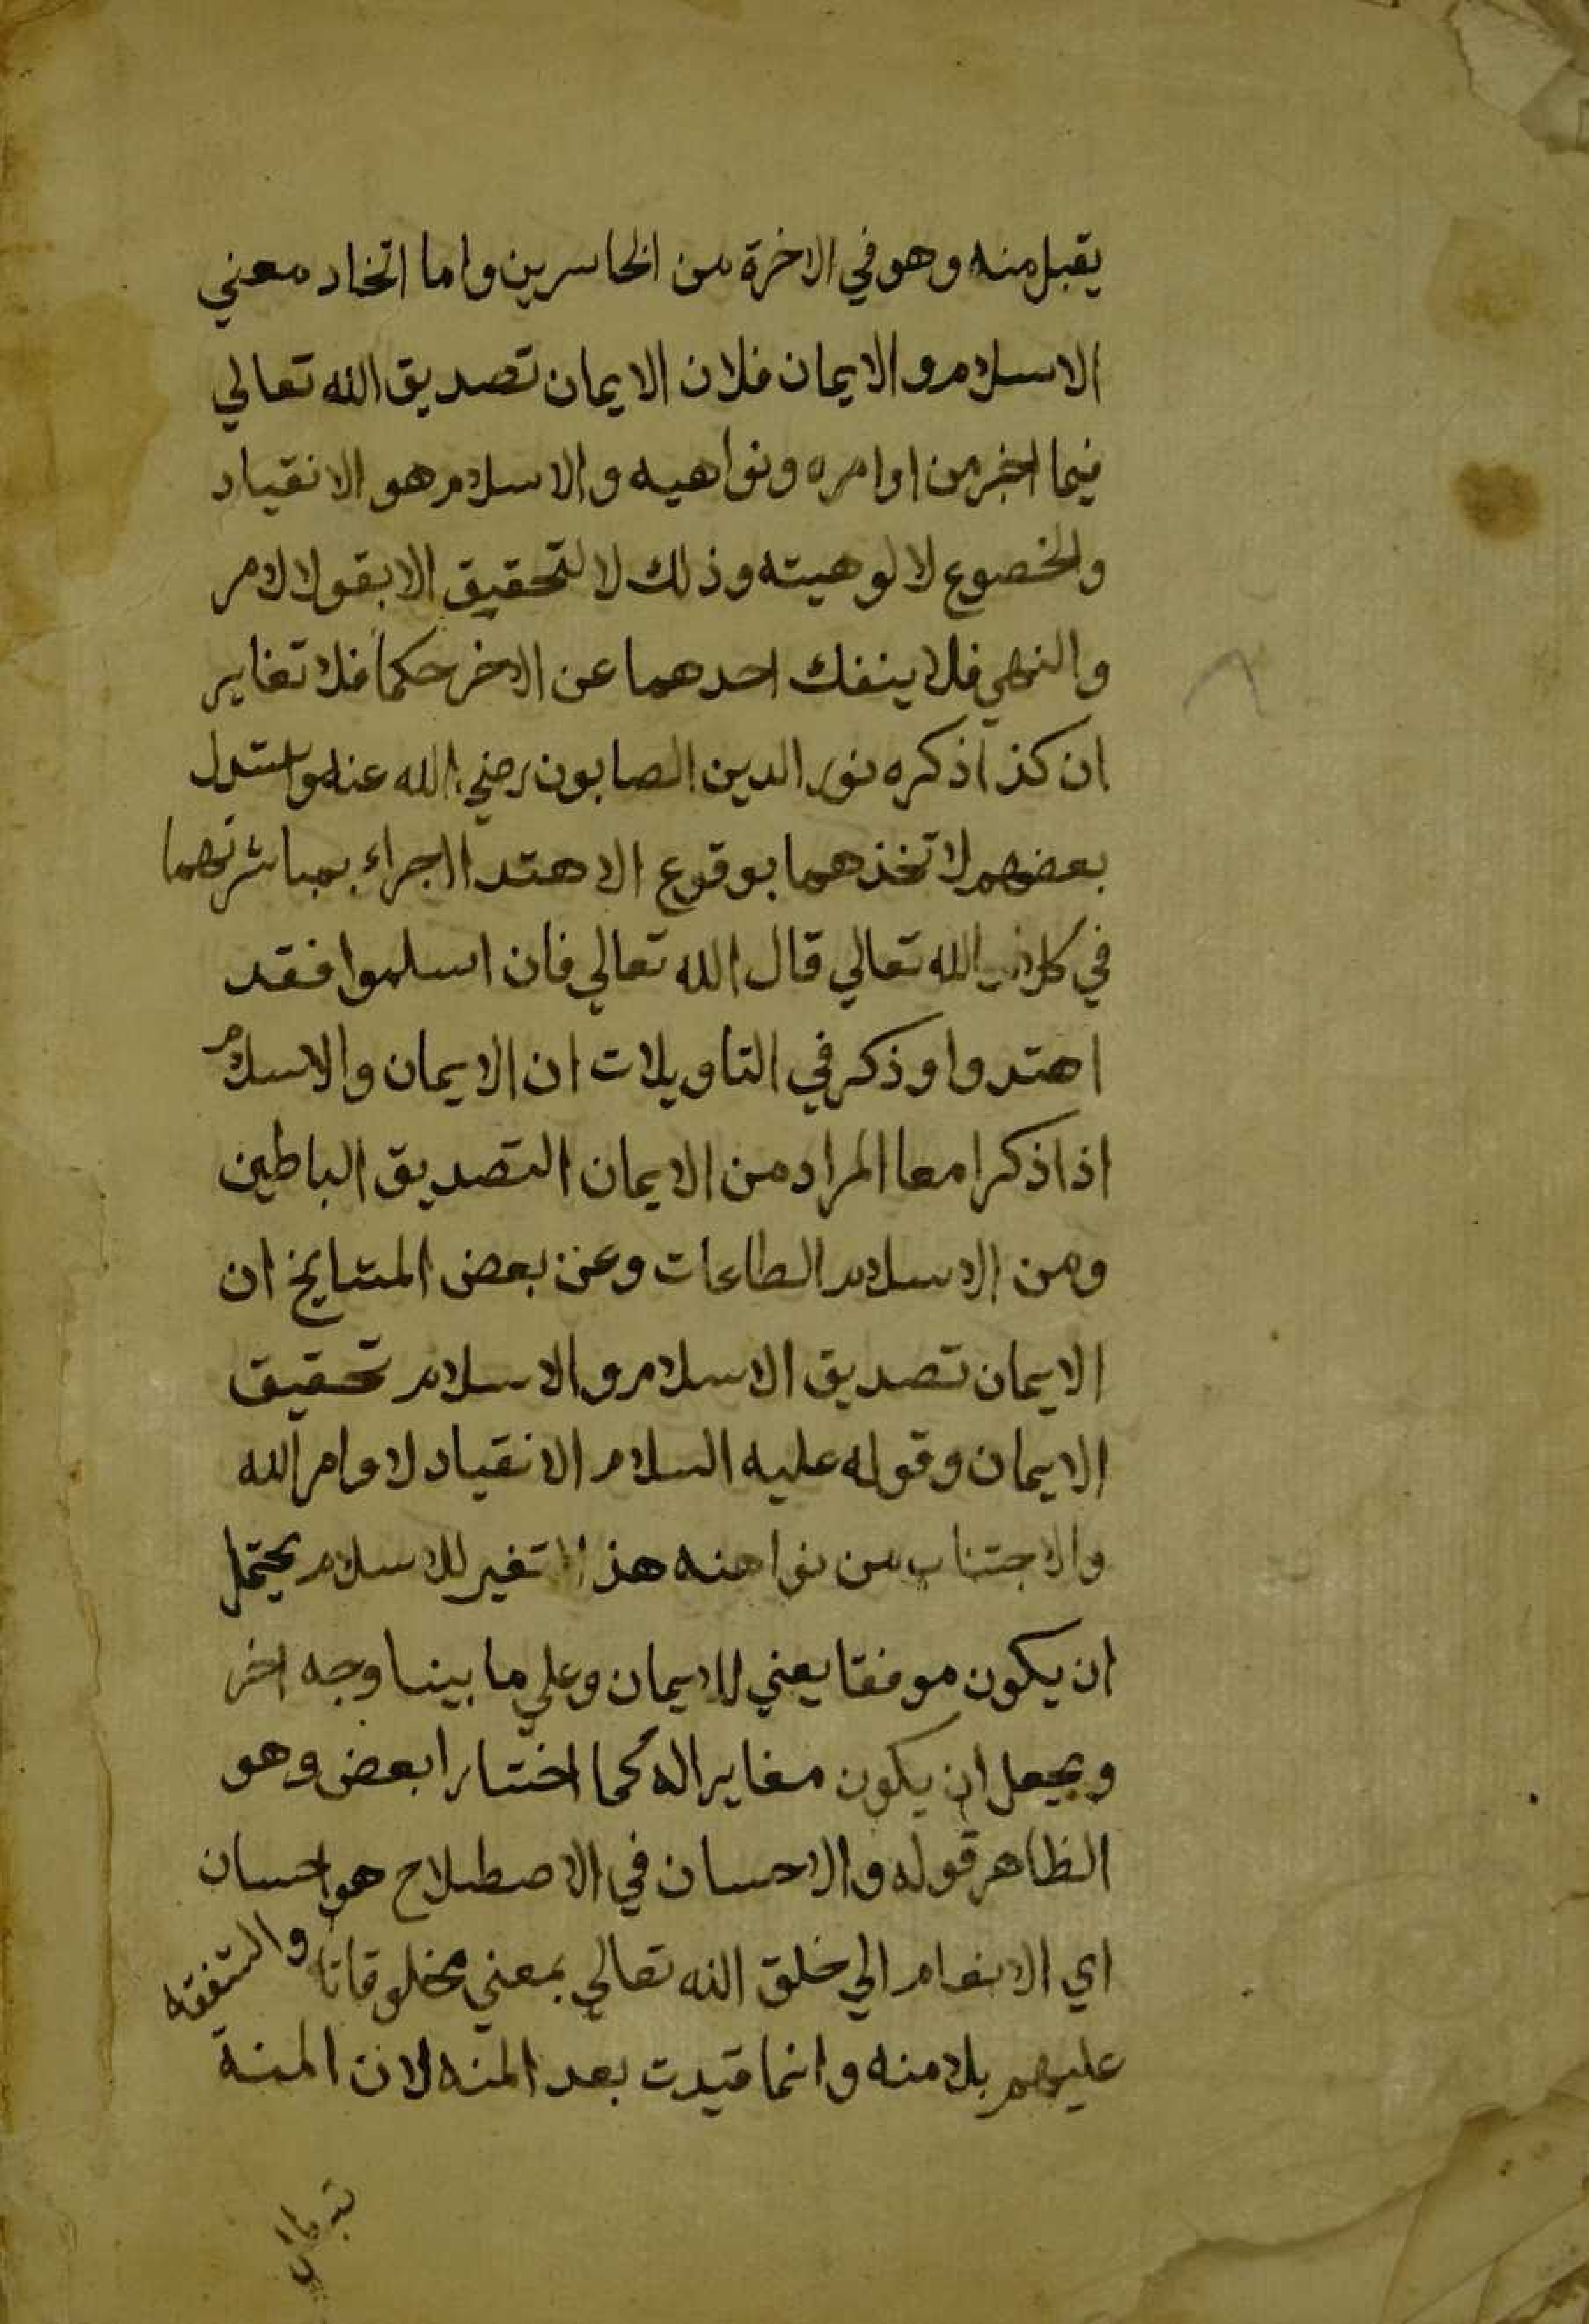 يقبل منه وهو في الاخرة من الخاسرين واما اتخاد معني
الاسلام والايمان فلان الايمان تصديق الله تعالي
فيما اخبر من اوامره ونواهيه والاسلام هو الانقياد
والخضوع لالوهيته وذلك لا لتحقيق الا بقولالامر
والنهي فلا ينفك احدهما عن الاخر حكما فلا تغاير
ان كذا ذكره نور الدين الصابون رضي الله عنه واستدل
بعضهم لاتخذهما بوقوع الاهتدا اجراء بمباشرتهما
في الله تعالي قال الله تعالي فان اسلموا فقد
اهتدوا وذكر في التاويلات ان الايمان والاسلام
اذا ذكرا معا المراد من الايمان التصديق الباطين
ومن الاسلام الطاعات وعن بعض المشايخ ان
الايمان تصديق الاسلام والاسلام تحقيق
الايمان وقوله عليه السلام الانقياد لاوامر الله
والاجتناب من نواهنه هذا تفير للاسلام يحتمل
ان يكون موفقا يعني للايمان وعلي ما بينا وجه اخر
ويجعل ان يكون مغايرا له كما اختارا بعض وهو
الظاهر قوله والاحسان في الاصطلاح هو احسان
اي الانعام الي خلق الله تعالي بمعني مخلوقاتا والشفقه
عليهم بلا منه وانما قيدت بعد المنه لان المنة